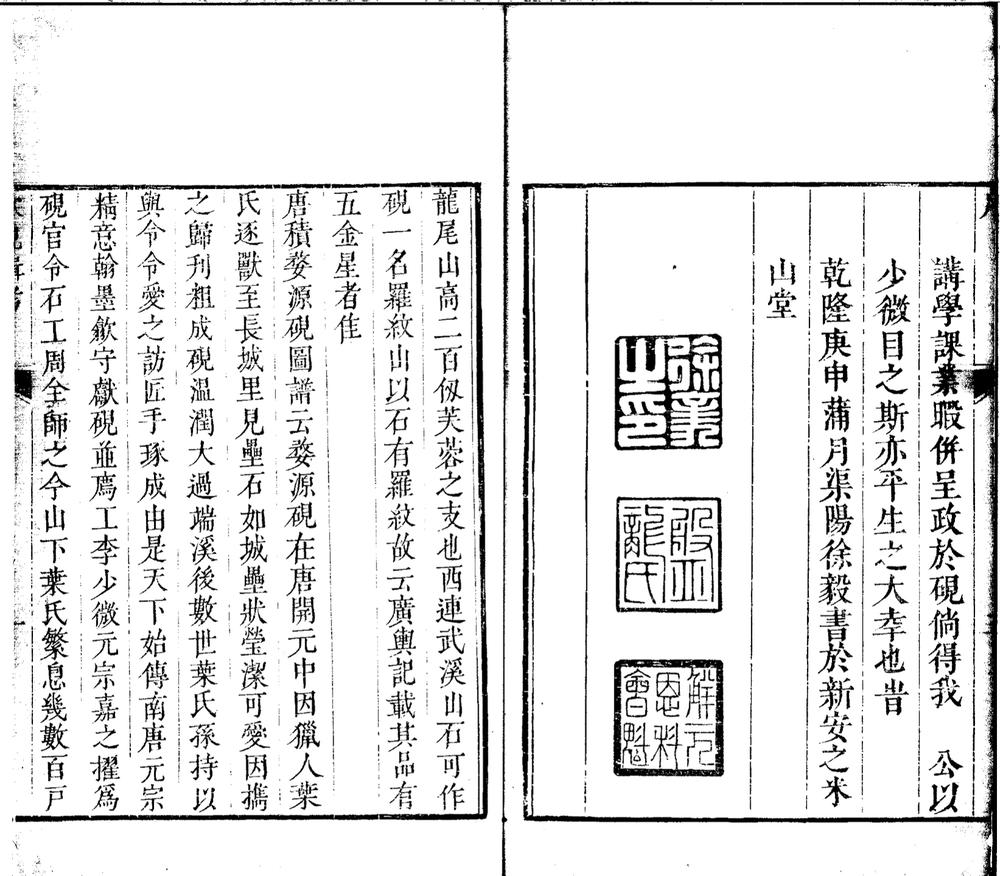 講學課業暇併呈政於硯倘得我　公以
少微目之斯亦平生之大幸也旹
乾隆庚申蒲月渠陽徐毅書於新安之米
山堂
徐毅之印
解元會魁恩科
龍尾山高二百仭芙蓉之支也西連武溪山石可作
硯一名羅紋山以石有羅紋故云廣輿記載其品有
五金星者隹
唐積婺源硯圖譜云婺源硯在唐開元中因獵人葉
氏逐獸至長城里見壘石如城壘狀瑩潔可愛因攜
之歸刋粗成硯温潤大過端溪後數世葉氏孫持以
與令令愛之訪匠手琢成由是天下始傳南唐元宗
精意翰墨歙守獻硯並薦工李少微元宗嘉之擢爲
硯官令石工周全師之今山下葉氏繁息幾數百戸